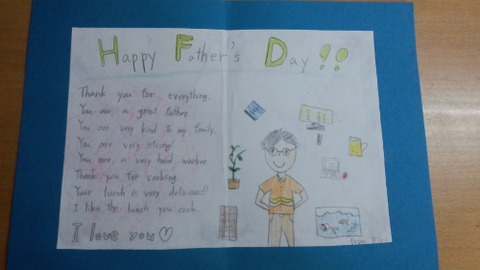 Happy Father's Day!!
Thank you for everything.
You are a great father.
You are very kind to my family.
You are very strong!
You are a very hard worker.
Thank you for cooking.
Your lunch is very delicious!!
I like the lunch you cook.
I love you♡
from